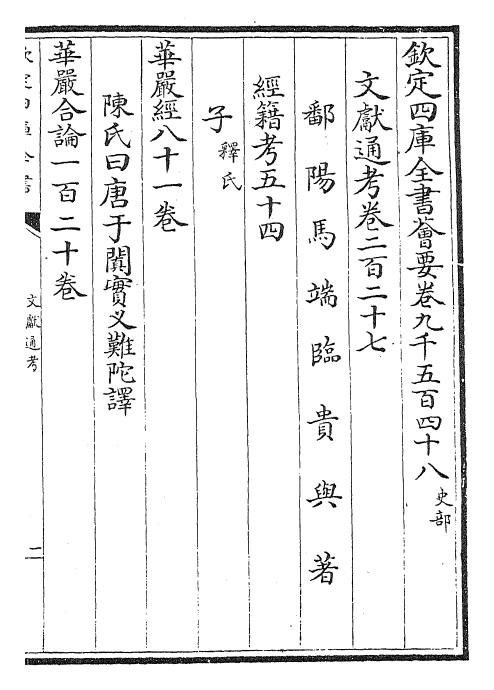 欽定四庫全書薈要卷九千五百四十八 史部
文獻通考卷二百二十七
鄱陽馬端臨貴與著
經籍考五十四
子 釋氏
華嚴經八十一卷
陳氏曰唐于闐實乂難陀譯
華嚴合論一百二十卷
欽定四庫全書
文獻通考
二